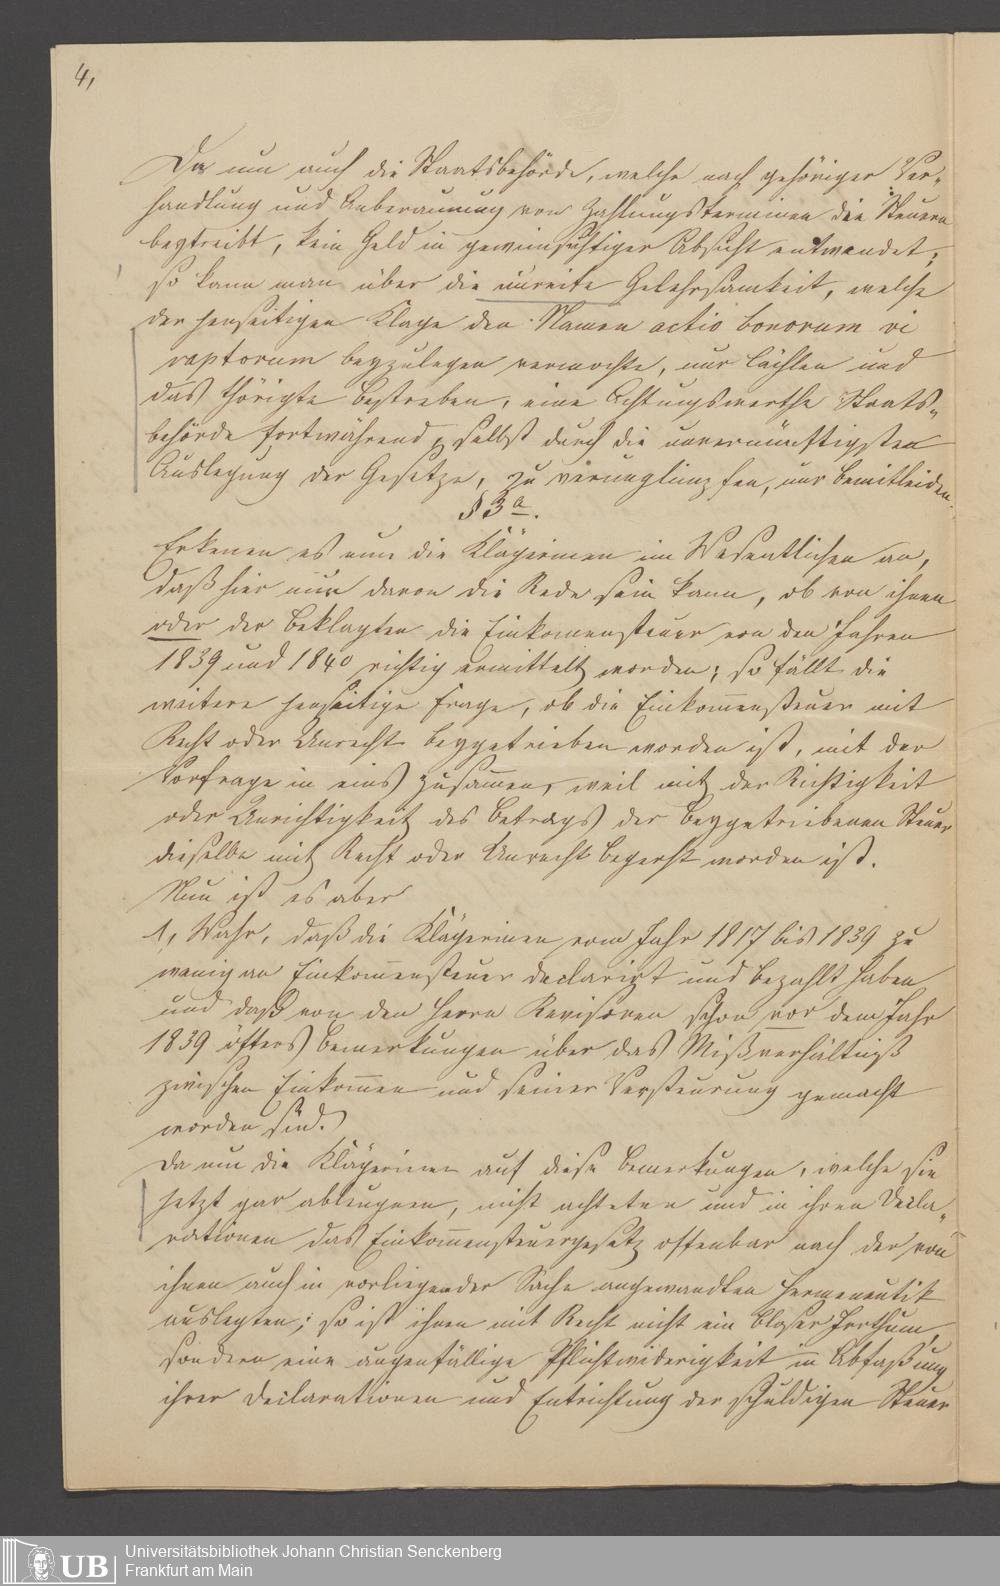 4,
Da nun auch die Staatsbehörde, welche nach gehöriger Ver-
handlung und Anberaumung von Zahlungsterminen die Steuern
beytreibt, kein Geld in gewinnsüchtiger Absicht entwendet;
so kann man über die unreife Gelehrsamkeit, welche
der jenseitigen Klage den Namen actio bonorum vi
raptorum beyzulegen vermochte, nur lächlen und
das thörigte Bestreben, eine Achtungswerthe Staats-
behörde fortwährend, selbst durch die unvernünftigsten
Auslegung der Gesetze, zu verunglimpfen, nur bemitleiden.
§ 3a.
Erkenen es nun die Klägerinnen im Wesentlichen an,
daß hier nur davon die Rede sein kann, ob von ihnen
oder der Beklagten die Einkomensteuer von den Jahren
1839 und 1840 richtig ermittelt worden; so fällt die
weitere jenseitige Frage, ob die Einkom̅ensteuer mit
Recht oder Unrecht beygetrieben worden ist, mit der
Vorfrage in eins zusam̅en, weil mit der Richtigkeit
oder Unrichtigkeit des Betrags der beygetriebenen Steuer
dieselbe mit Recht oder Unrecht begehrt worden ist.
Nun ist es aber
1, Wahr, daß die Klägerinen vom Jahr 1817 bis 1839 zu
wenig an Einkom̅ensteuer declarirt und bezahlt haben
und daß von den Herrn Revisoren schon vor dem Jahr
1839 öfters Bemerkungen über das Mißverhältniß
zwischen Einkom̅en und seiner Versteurung gemacht
worden sind.
Da nun die Klägerinen auf diese Bemerkungen, welche sie
jetzt gar ableugnen, nicht achteten und in ihren Decla-
rationen das Einkom̅ensteuergesetz offenbar nach der von
ihnen auch in vorliegender Sache angewandten Hermeneutik
auslegten; so ist ihnen mit Recht nicht ein bloser Irrthum,
sondern eine augenfällige Pflichtwidrigkeit in Abfaßung
ihrer Declarationen und Entrichtung der schuldigen Steuer
UB
Universitätsbibliothek Johann Christian Senckenberg
Frankfurt am Main